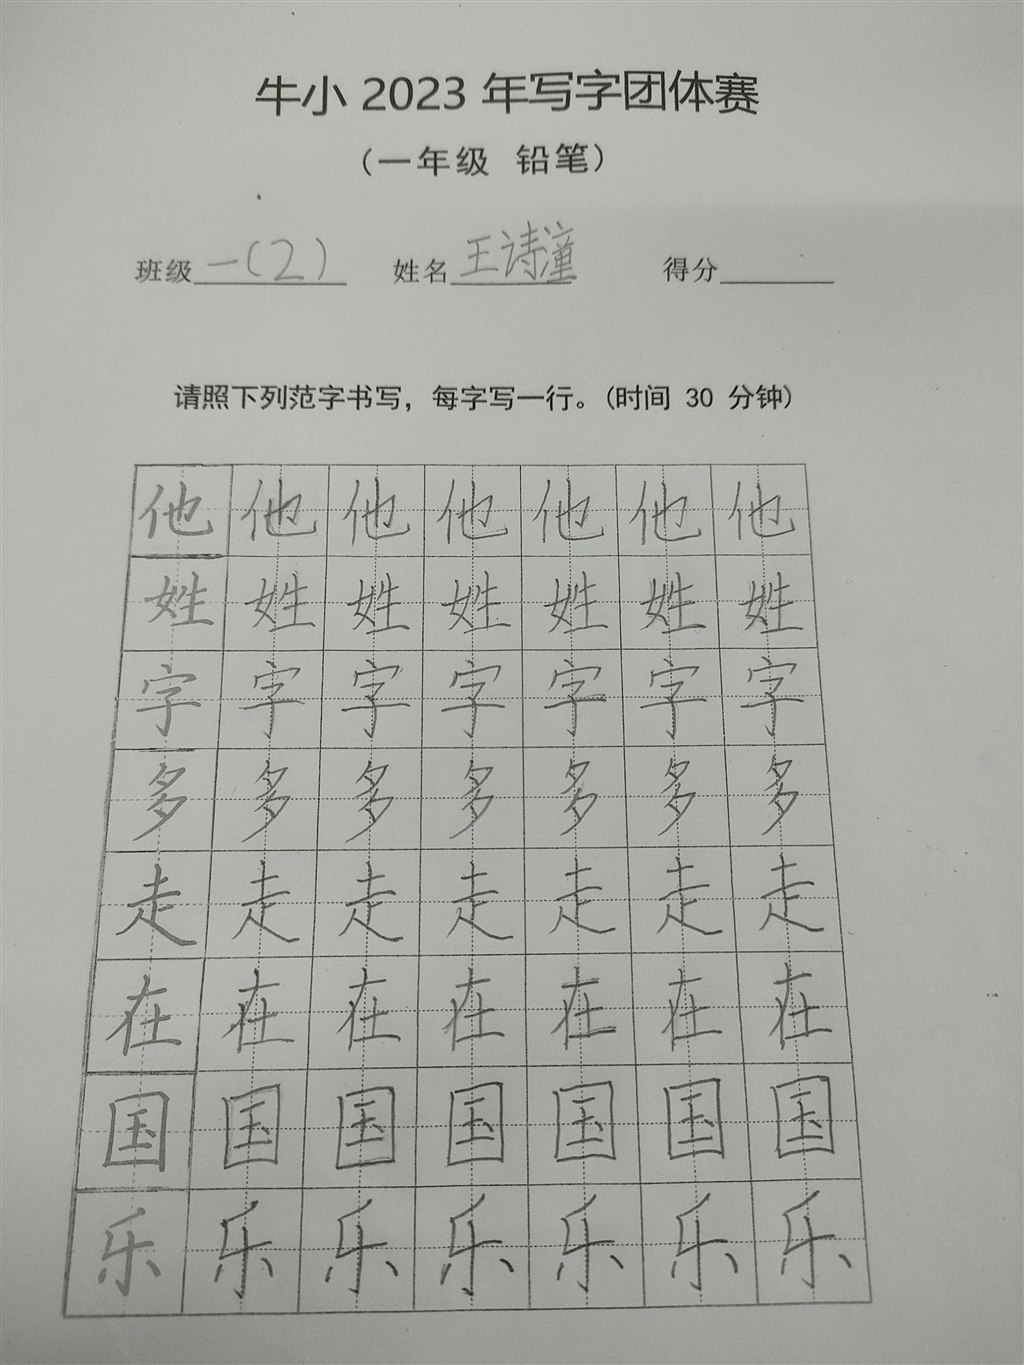 牛小 2023 年写字团体赛
（一年级 铅笔）
班级 一（2） 姓名 王诗潼 得分
请照下列范字书写，每字写一行。（时间 30 分钟）
他 他 他 他 他 他 他
姓 姓 姓 姓 姓 姓 姓
字 字 字 字 字 字 字
多 多 多 多 多 多 多
走 走 走 走 走 走 走
在 在 在 在 在 在 在
国 国 国 国 国 国 国
乐 乐 乐 乐 乐 乐 乐